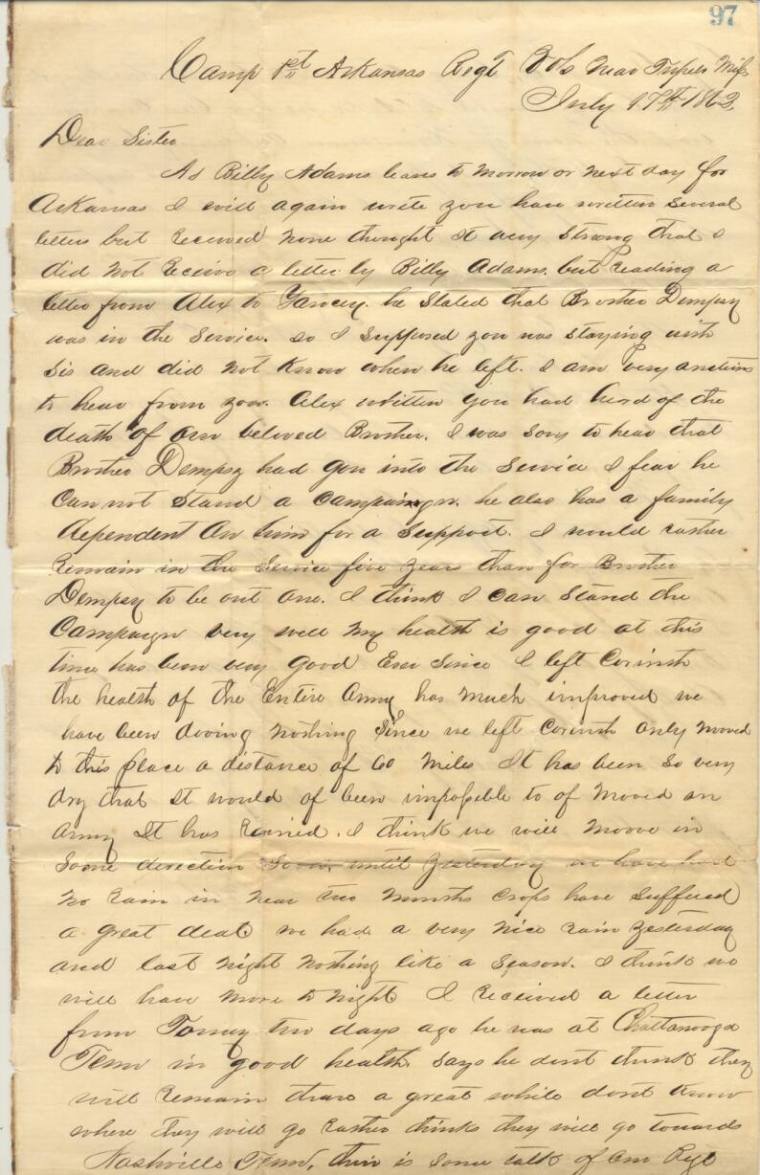 97
Camp 1st Arkansas Regt Vols Near Tupelo Miss
July 17th 1862
Dear Sister
As Billy Adams leaves to morrow or next day for
Arkansas I will again write you have written several
letters but received none thought it very strang that I
did not receive a letter by Billy Adams, but reading a
letter from Alex to Yancey he stated that Brother Dempsy
was in the Service. so I supposed you was staying with
Sis and did not know when he left. I am very anctious
to hear from you. Alex written you had herd of the
death of our beloved Brother. I was sory to hear that
Brother Dempsy had gon into the Service I fear he
Can not Stand a Campaingn. he also has a family
dependent on him for a Support. I would rather
remain in the Service five years than for Brother
Dempsy to be out one. I think I can Stand the
Campaign very well my health is good at this
time has been very good Ever Since I left Corinth
the health of the Entire Army has much improved we
have been dooing nothing Since we left Corinth only moved
to this place a distance of 60 Miles It has been So very
dry that it would of been impossible to of moved an
army It has rained. I think we will moove in
Some direction Soon, until yesterday we have had
no rain in near two months crops have suffered
a great deal we had a very nice rain yesterday
and last night nothing like a Season. I think we
will have more to night I received a letter
from Tomy two days ago he was at Chattanooga
Tenn in good health says he dont think they
will remain thare a great while dont know
where they will go rather thinks they will go towards
Nashville Tenn, thire is some talk of our Regt